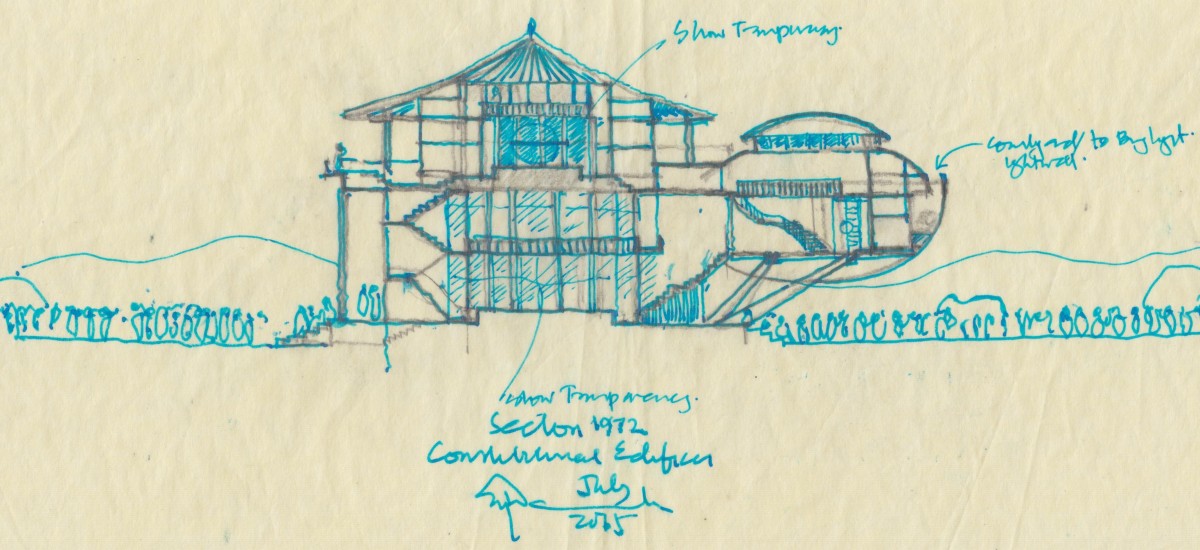 Show Transparency.
Courtyard to
lightwell.
Show Transparency.
Section 1972
Constitutional Edifice
July
2015